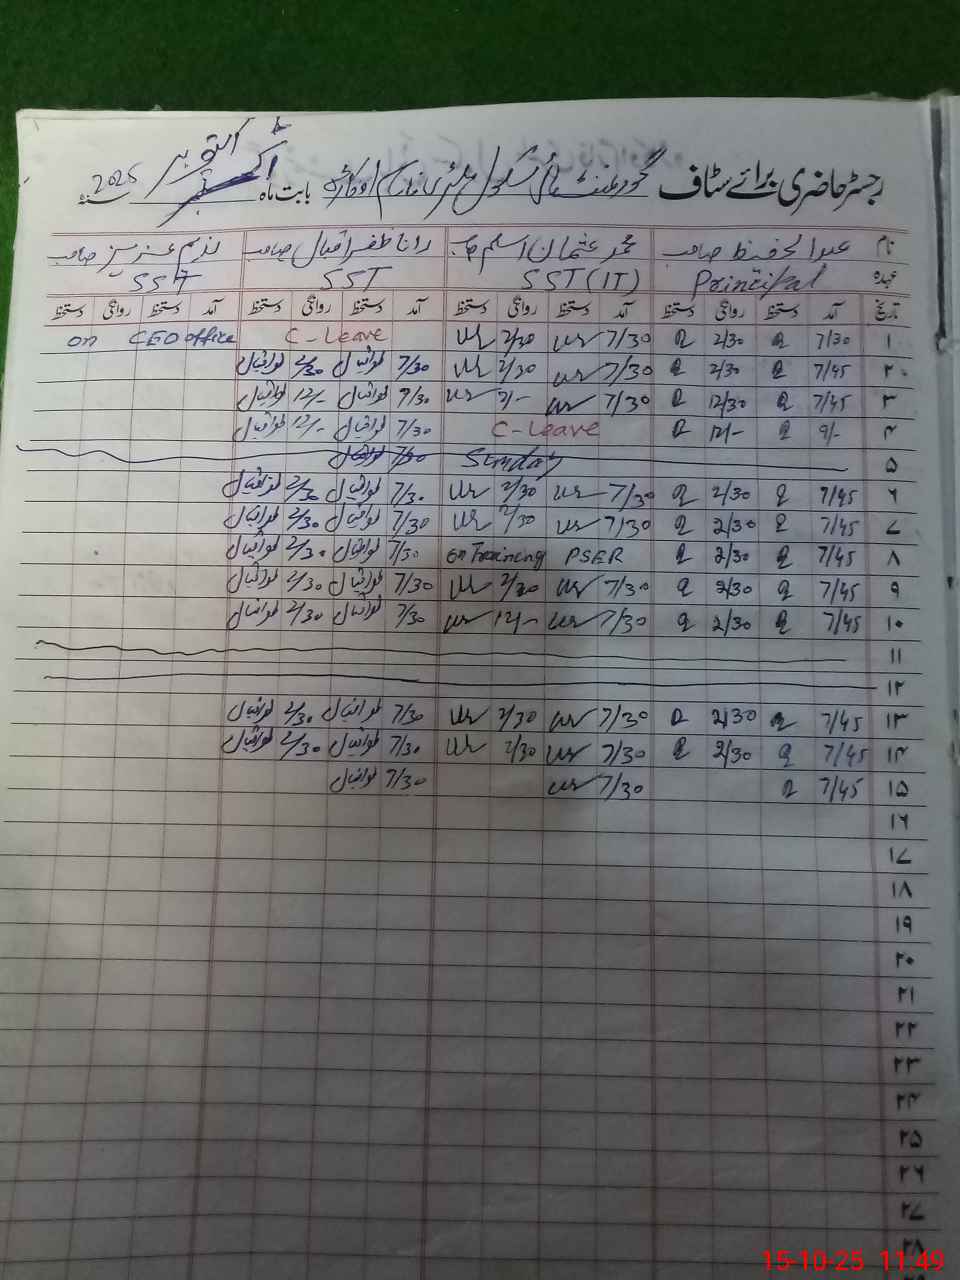 رجسٹر حاضری برائے سٹاف گورنمنٹ ہائی سکول ملٹری فارم اوکاڑہ بابت ماہ اکتوبر سنہ 2025
نام عبدالحفیظ صاحب محمد عثمان اسلم صاحب رانا ظفر اقبال صاحب ندیم عزیز صاحب
عہدہ Principal SST (IT) SST SST
تاریخ آمد دستخط روانگی دستخط آمد دستخط روانگی دستخط آمد دستخط روانگی دستخط آمد دستخط روانگی دستخط
۱ 7/30 2/30 7/30 2/30 C-Leave on CEO office
۲ 7/45 2/30 7/30 2/30 7/30 ظفر اقبال 2/30 ظفر اقبال
۳ 7/45 12/30 7/30 2/- 7/30 ظفر اقبال 12/- ظفر اقبال
۴ 9/- 12/- C-Leave 7/30 ظفر اقبال 12/- ظفر اقبال
۵ Sunday
۶ 7/45 2/30 7/30 2/30 7/30 ظفر اقبال 2/30 ظفر اقبال
۷ 7/45 2/30 7/30 2/30 7/30 ظفر اقبال 2/30 ظفر اقبال
۸ 7/45 2/30 on Training PSER 7/30 ظفر اقبال 2/30 ظفر اقبال
۹ 7/45 2/30 7/30 2/30 7/30 ظفر اقبال 2/30 ظفر اقبال
۱۰ 7/45 2/30 7/30 12/- 7/30 ظفر اقبال 2/30 ظفر اقبال
۱۱
۱۲
۱۳ 7/45 2/30 7/30 2/30 7/30 ظفر اقبال 2/30 ظفر اقبال
۱۴ 7/45 2/30 7/30 2/30 7/30 ظفر اقبال 2/30 ظفر اقبال
۱۵ 7/45 7/30 7/30 ظفر اقبال
۱۶
۱۷
۱۸
۱۹
۲۰
۲۱
۲۲
۲۳
۲۴
۲۵
۲۶
۲۷
۲۸
15-10-25 11:49